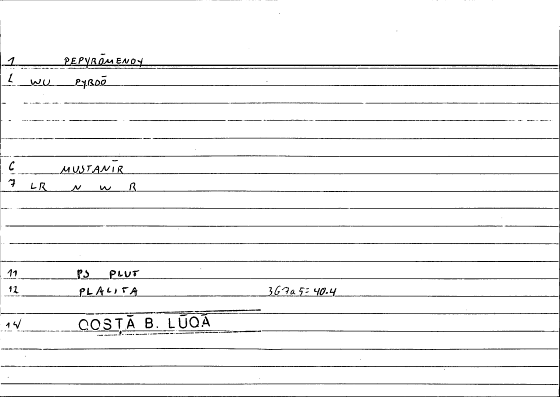 1 PEPYRŌMENOY
L WU PYROŌ
6 MUSTANĪR
7 LR N W R
11 PS PLUT
12 PLALITA 367a5=40.4
14 QOSṬĀ B. LŪQĀ